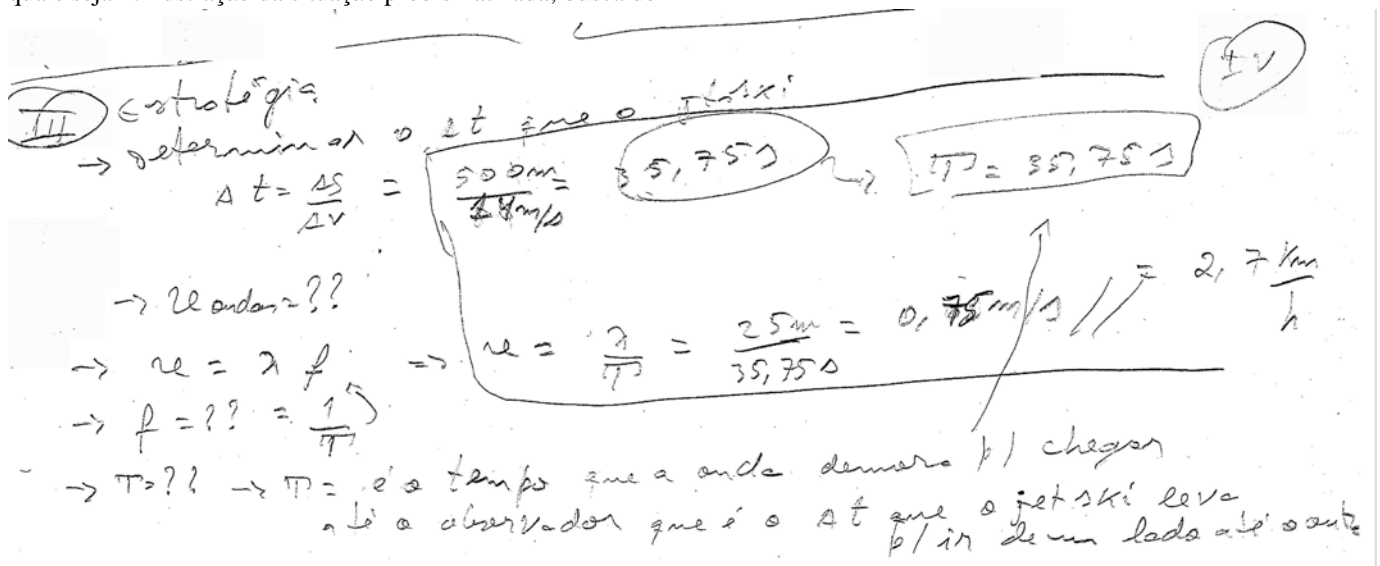 III Estratégia
→ Determinar o Δt que o jetski
Δt = ΔS/ΔV = 500m/14m/s = 35,75s → T = 35,75s
IV
→ v ondas = ??
→ v = λ f ⇒ v = λ/T = 25m/35,75s = 0,75m/s // = 2,7 Km/h
→ f = ?? = 1/T
→ T = ?? → T = é o tempo que a onda demora p/ chegar
até o observador que é o Δt que o jet ski leva
p/ ir de um lado até o outro